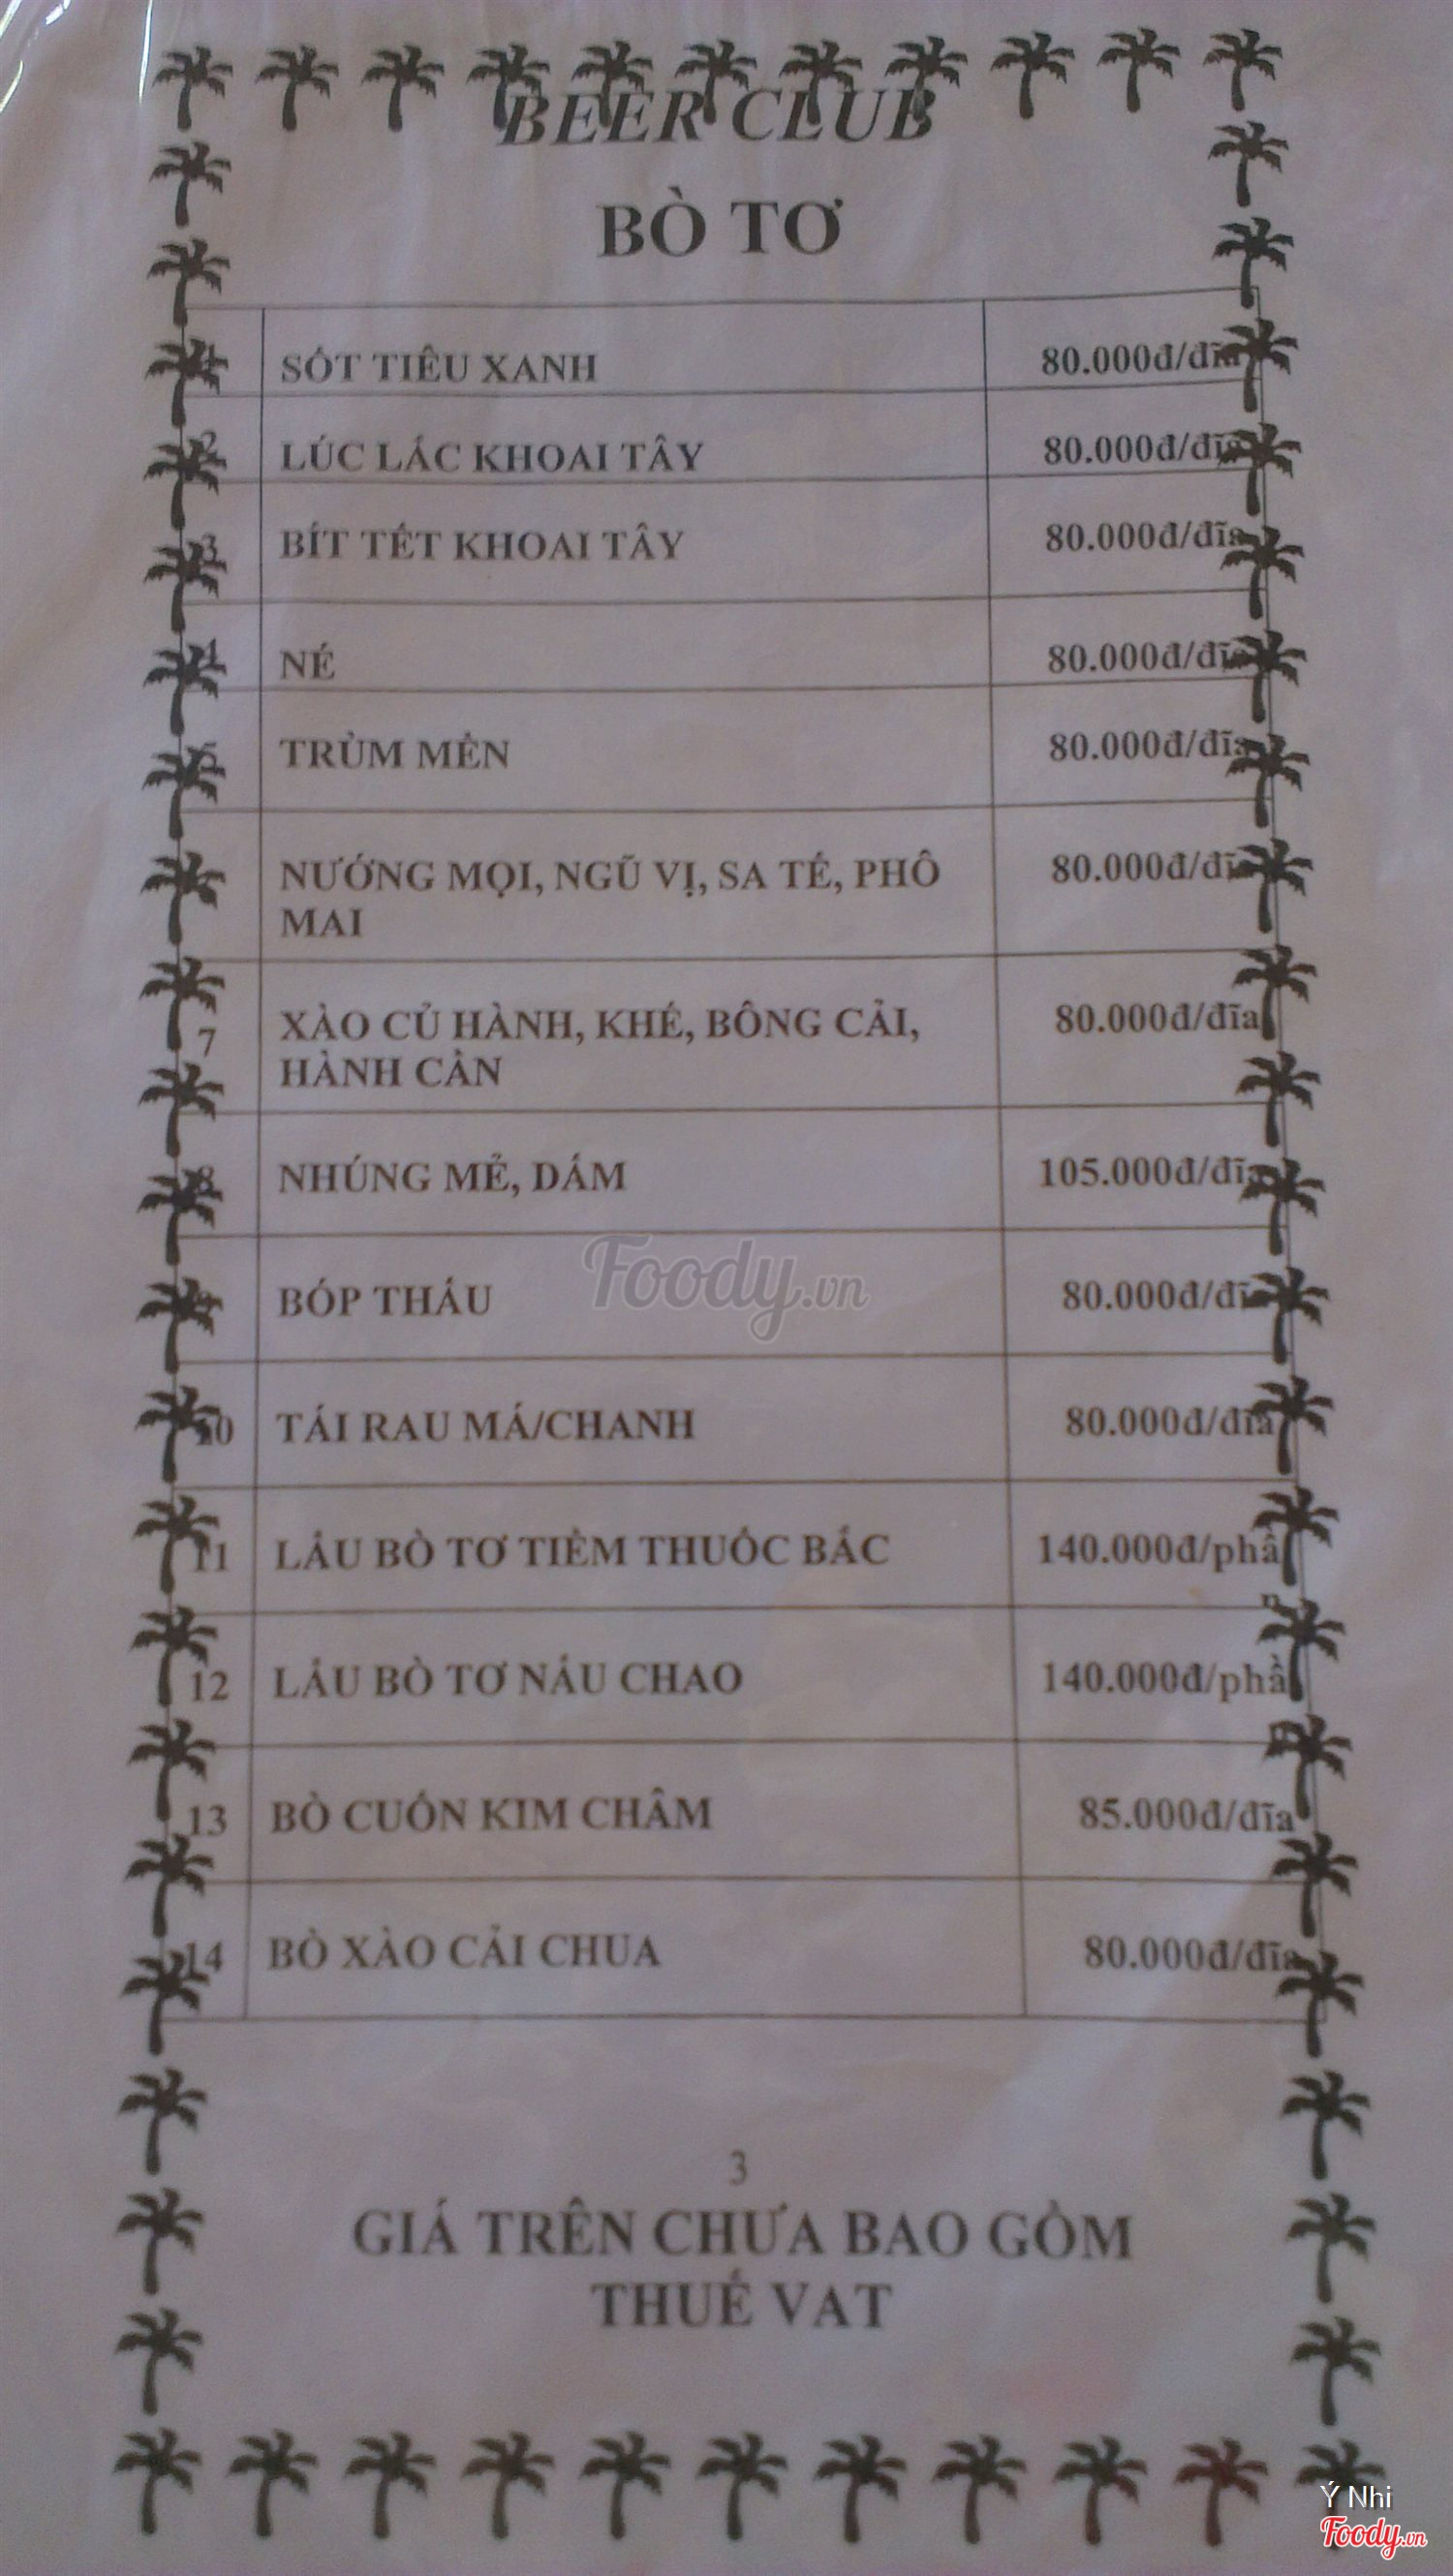 BEER CLUB
BÒ TƠ
1 SỐT TIÊU XANH 80.000đ/đĩa
2 LÚC LẮC KHOAI TÂY 80.000đ/đĩa
3 BÍT TẾT KHOAI TÂY 80.000đ/đĩa
4 NÉ 80.000đ/đĩa
5 TRÙM MỀN 80.000đ/đĩa
NƯỚNG MỌI, NGŨ VỊ, SA TẾ, PHÔ 80.000đ/đĩa
MAI
7 XÀO CỦ HÀNH, KHẾ, BÔNG CẢI, 80.000đ/đĩa
HÀNH CẦN
8 NHÚNG MẺ, DẤM 105.000đ/đĩa
9 BÓP THẤU 80.000đ/đĩa
10 TÁI RAU MÁ/CHANH 80.000đ/đĩa
11 LẨU BÒ TƠ TIỀM THUỐC BẮC 140.000đ/phầ
n
12 LẨU BÒ TƠ NẤU CHAO 140.000đ/phầ
n
13 BÒ CUỐN KIM CHÂM 85.000đ/đĩa
14 BÒ XÀO CẢI CHUA 80.000đ/đĩa
Foody.vn
3
GIÁ TRÊN CHƯA BAO GỒM
THUẾ VAT
Ý Nhi
Foody.vn